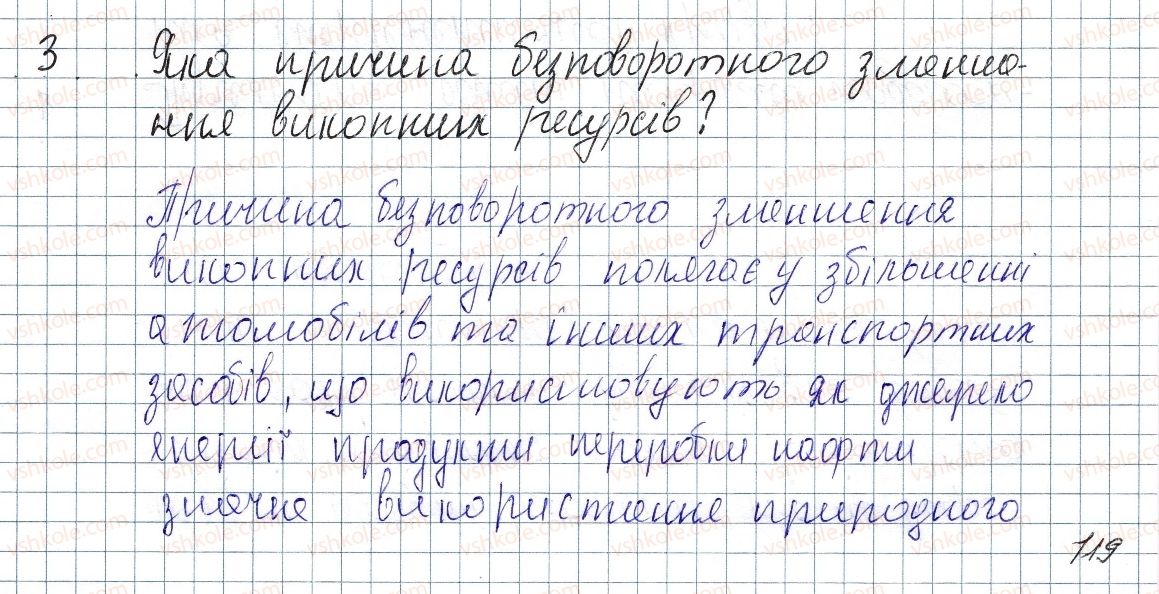 3. Яка причина безповоротного зменше-
ння викопних ресурсів?
Причина безповоротного зменшення
викопних ресурсів полягає у збільшенні
автомобілів та інших транспортних
засобів, що використовують як джерело
енергії продукти переробки нафти
значне використання природного
119